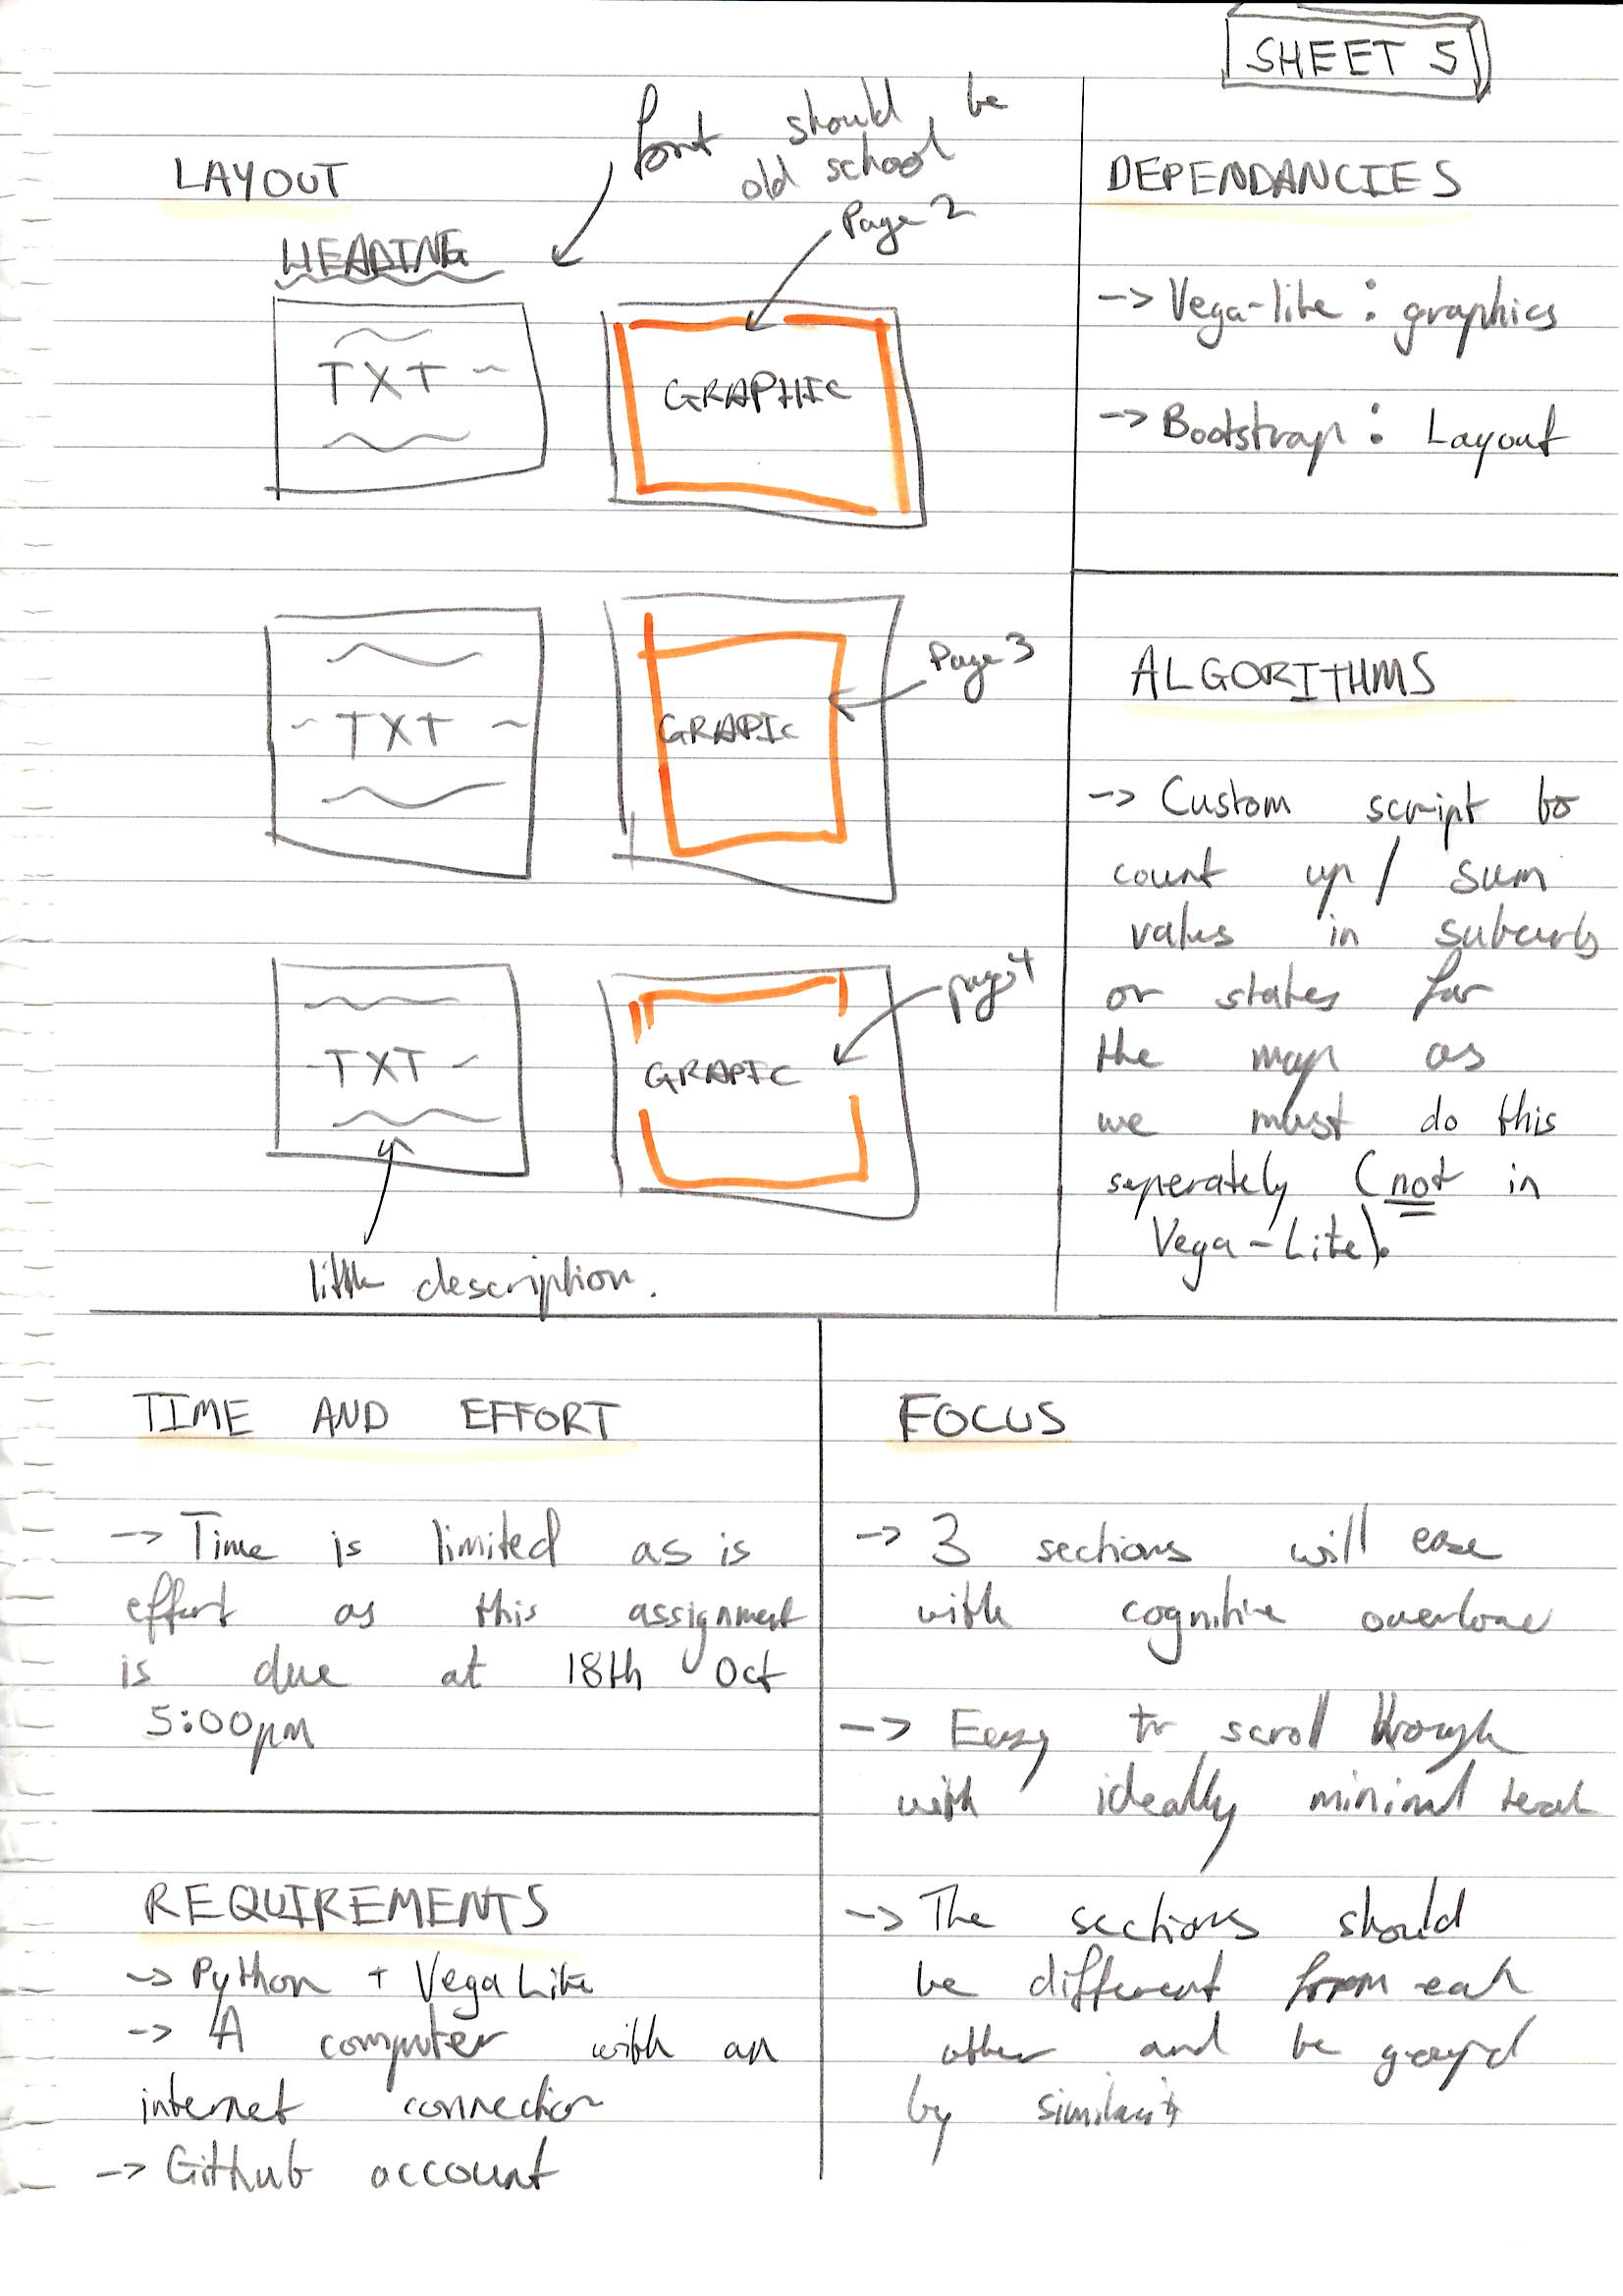 SHEET 5
LAYOUT
font should be
old school
HEADING
Page 2
TXT
GRAPHIC
Page 3
TXT
GRAPIC
page 4
TXT
GRAPIC
little description.
DEPENDANCIES
-> Vega-lite : graphics
-> Bootstrap : Layout
ALGORITHMS
-> Custom script to
count up / sum
values in suburb
or states for
the map as
we must do this
seperately (not in
Vega-Lite).
TIME AND EFFORT
-> Time is limited as is
effort as this assignment
is due at 18th Oct
5:00pm
REQUIREMENTS
-> Python + Vega Lite
-> A computer with an
internet connection
-> Github account
FOCUS
-> 3 sections will ease
with cognitive
-> Easy to scroll through
with ideally minimal
-> The sections should
be different from each
other and be
by